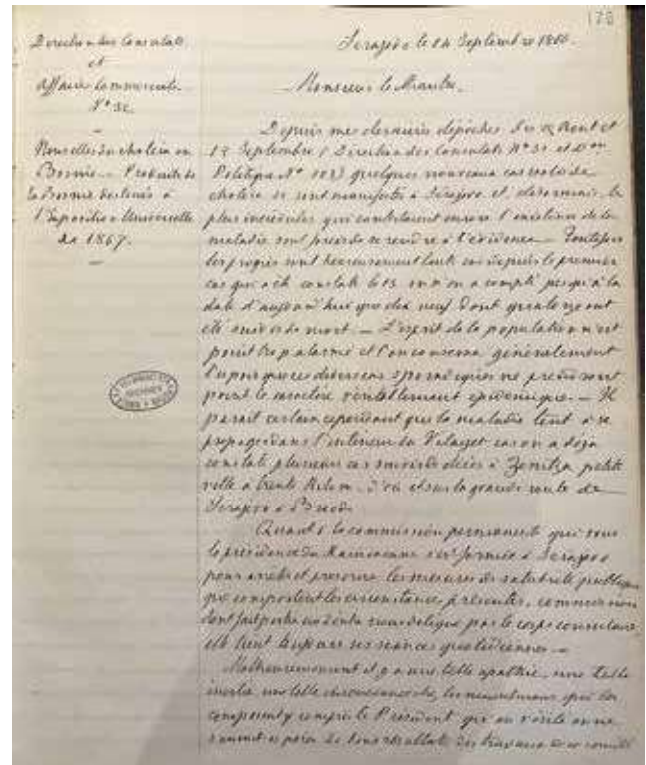 178
Direction des Consulats
et
Affaires Commerciales
N° 32
Nouvelles du choléra en
Bosnie – Produits de
la Bosnie destinés à
l'Exposition Universelle
de 1867.
Serajevo le 14 Septembre 1866.
Monsieur le Ministre,
Depuis mes dernières dépêches des Août et
13 Septembre (Direction des Consulats N° 31 et Don
Politique N° 103) quelques nouveaux cas de
choléra se sont manifestés à Serajevo et, désormais, les
plus incrédules qui combattaient encore l'existence de la
maladie sont forcés de se rendre à l'évidence – Toutefois
les progrès sont heureusement lents car depuis le premier
cas qui a été constaté le 13 on n'en a compté jusqu'à la
date d'aujourd'hui que dix neuf dont quatorze ont
été suivis de mort. – L'esprit de la population n'est
point trop alarmé et l'on conserve généralement
l'espoir que ces divers cas sporadiques ne prendront
point le caractère véritablement épidémique. – Il
parait certain cependant que la maladie tend à se
propager dans l'intérieur du Vilayet car on a déjà
constaté plusieurs cas suivis de décès à Zenitza petite
ville à trente Kilom. d'ici et sur la grande route de
Serajevo à Brod.
Quant à la commission permanente qui sous
la présidence du s'est formée à Serajevo
pour arrêter et prescrire les mesures de salubrité publique
que comportent les circonstances présentes, commission
dont fait partie un délégué par le corps consulaire
elle tient toujours ses séances quotidiennes –
Malheureusement il y a une telle apathie, une telle
inertie, une telle chez les musulmans qui la
composent y compris le Président qu'en vérité on ne
saurait espérer de bons résultats des travaux de ce comité